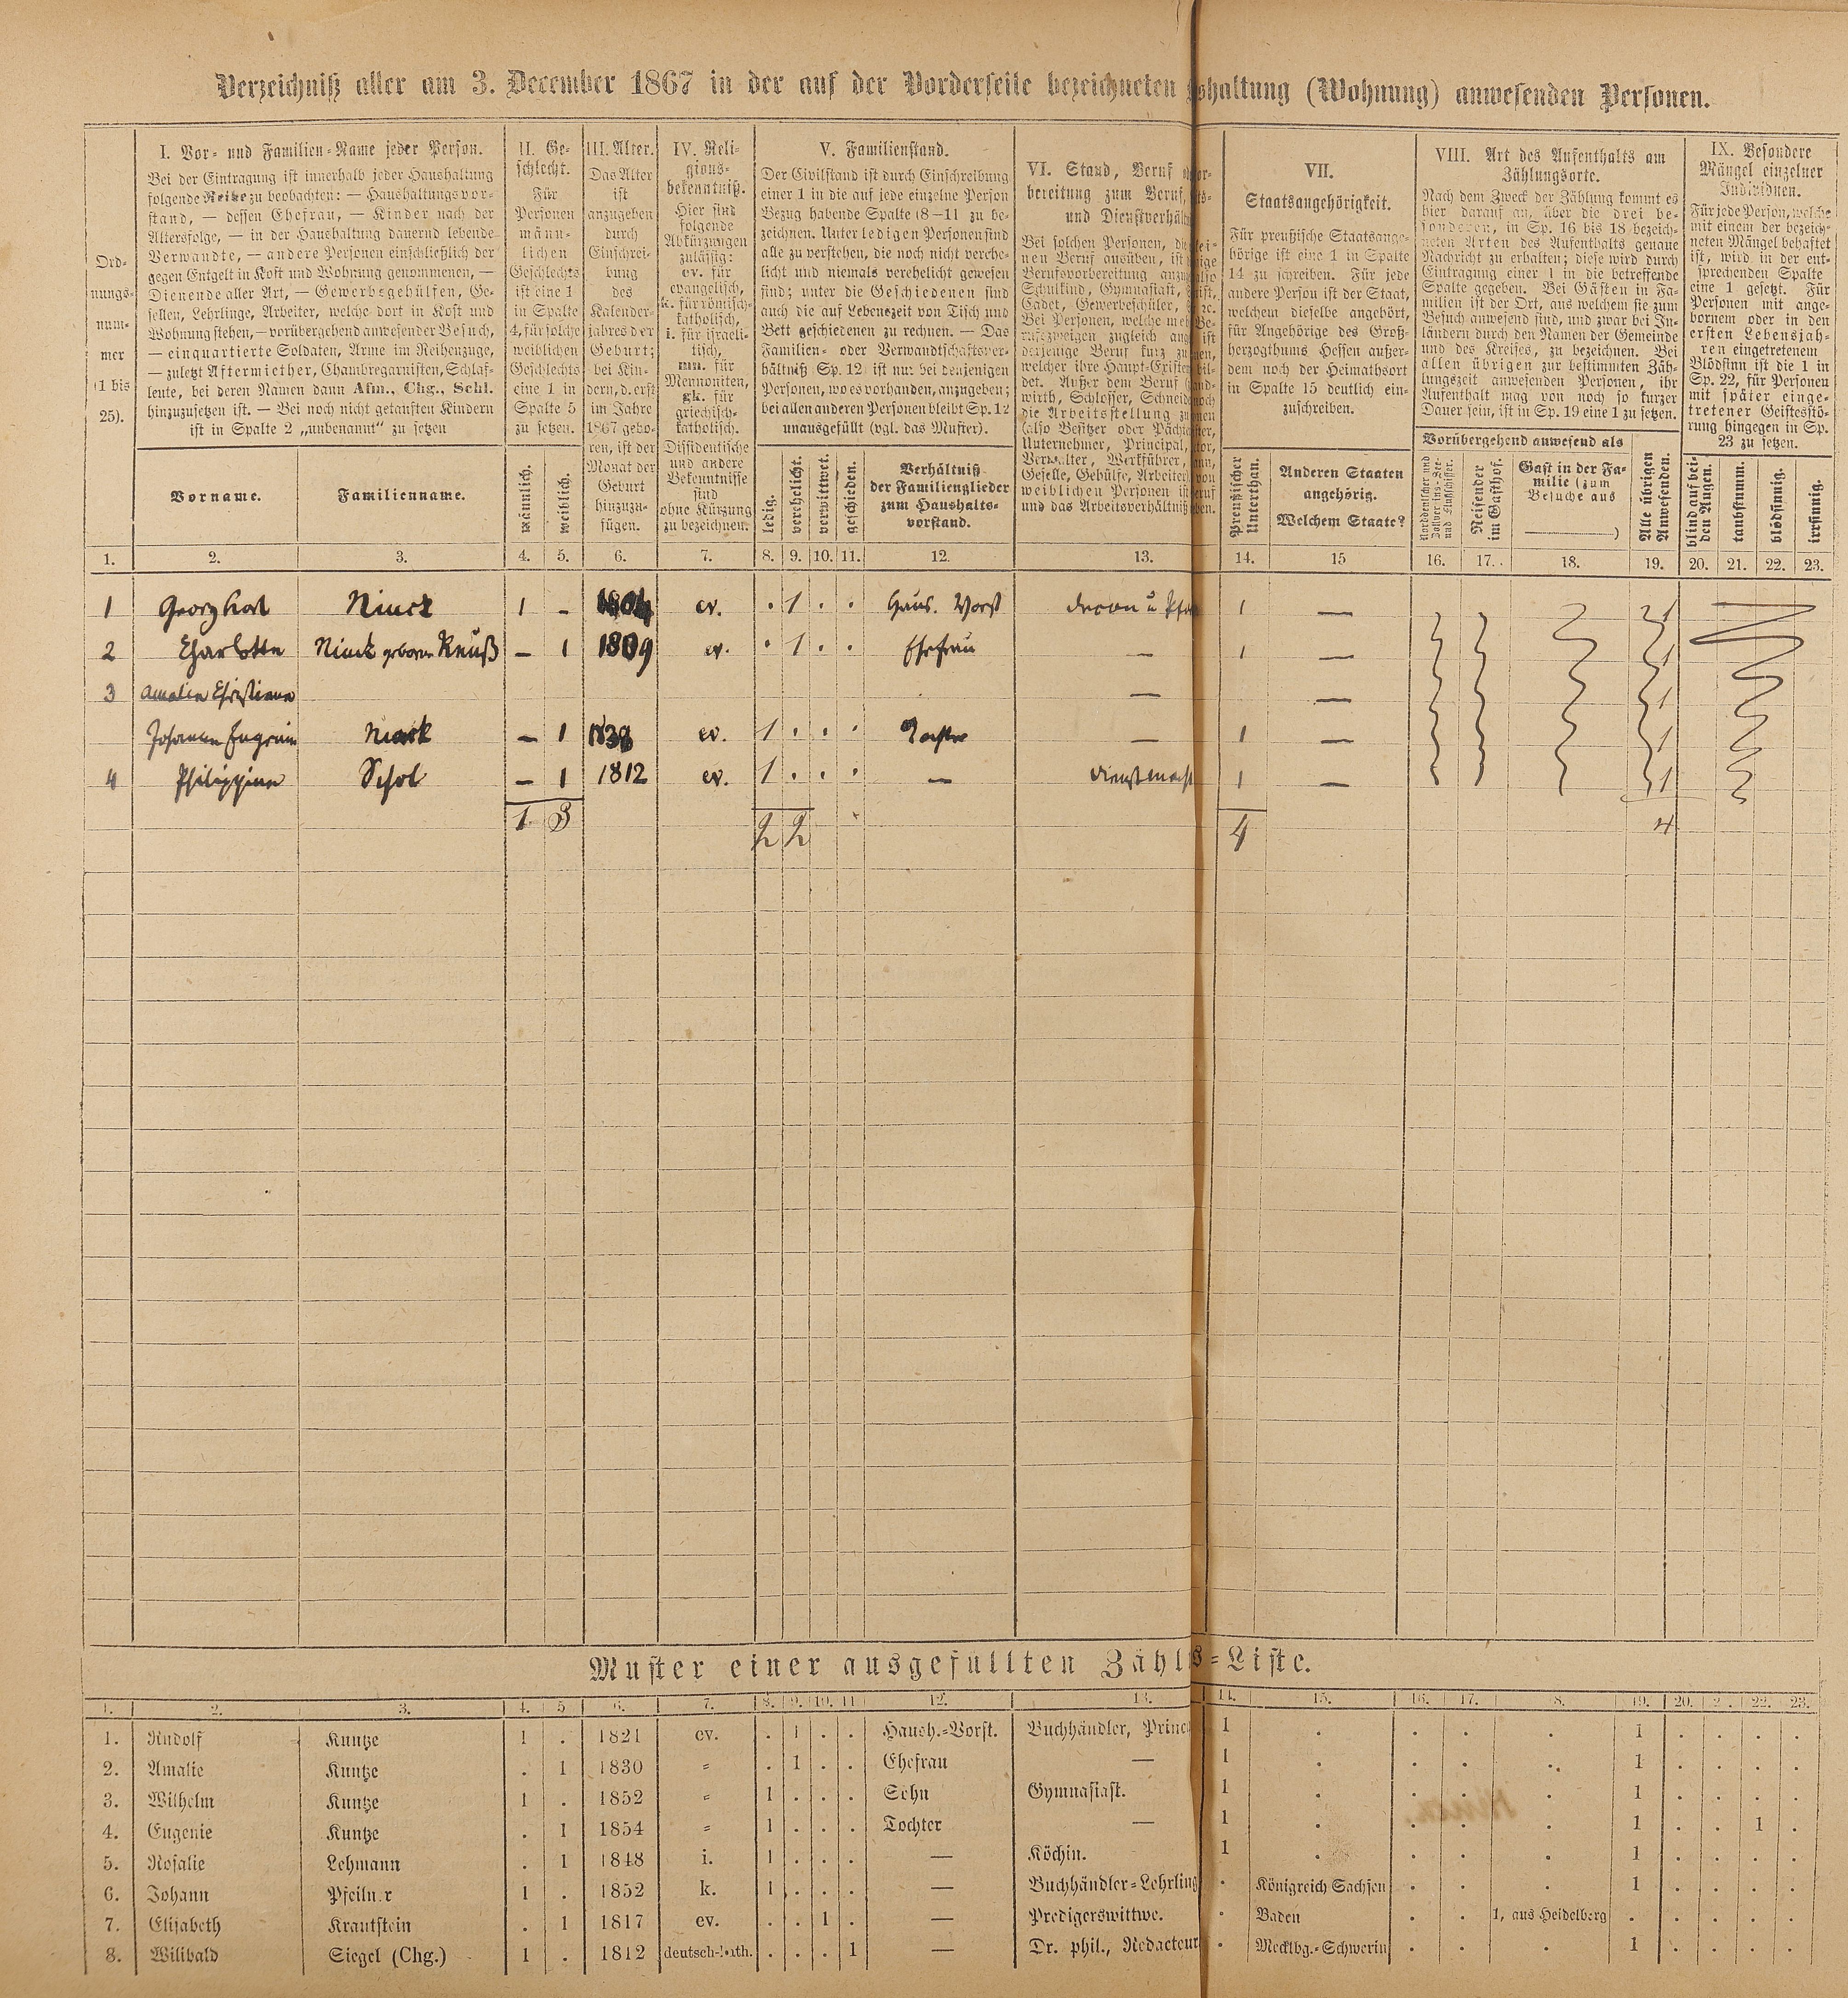 Verzeichniß aller am 3. December 1867 in der auf der Vorderseite bezeichneten shaltung (Wohnung) anwesenden Personen.
Ord-
nungs-
num-
mer
(1 bis
25).
I. Vor- und Familien-Name jeder Person.
Bei der Eintragung ist innerhalb jeder Haushaltung
folgende Reihe zu beobachten: — Haushaltungsvor-
stand, — dessen Ehefrau, — Kinder nach der
Altersfolge, — in der Haushaltung dauernd lebende
Verwandte, — andere Personen einschließlich der
gegen Entgelt in Kost und Wohnung genommenen, —
Dienende aller Art, — Gewerbsgehülfen, Ge-
sellen, Lehrlinge, Arbeiter, welche dort in Kost und
Wohnung stehen, — vorübergehend anwesender Besuch,
— einquartierte Soldaten, Arme im Reihenzuge,
— zuletzt Aftermiether, Chambregarnisten, Schlaf-
leute, bei deren Namen dann Afm., Chg., Schl.
hinzuzusetzen ist. — Bei noch nicht getauften Kindern
ist in Spalte 2 „unbenannt" zu setzen
Vorname.
Familienname.
II. Ge-
schlecht.
Für
Personen
männ-
lichen
Geschlechts
ist eine 1
in Spalte
4, für solche
weiblichen
Geschlechts
eine 1 in
Spalte 5
zu setzen.
männlich.
weiblich.
III. Alter.
Das Alter
ist
anzugeben
durch
Einschrei-
bung
des
Kalender-
jahres der
Geburt;
bei Kin-
dern, d. erst
im Jahre
1867 gebo-
ren, ist der
Monat der
Geburt
hinzuzu-
fügen.
IV. Reli-
gions-
bekenntniß.
Hier sind
folgende
Abkürzungen
zulässig:
ev. für
evangelisch,
k. für römisch-
katholisch,
i. für israeli-
tisch,
mn. für
Mennoniten,
gk. für
griechisch-
katholisch.
Dissidentische
und andere
Bekenntnisse
sind
ohne Kürzung
zu bezeichnen.
V. Familienstand.
Der Civilstand ist durch Einschreibung
einer 1 in die auf jede einzelne Person
Bezug habende Spalte (8—11 zu be-
zeichnen. Unter ledigen Personen sind
alle zu verstehen, die noch nicht verehe-
licht und niemals verehelicht gewesen
sind; unter die Geschiedenen sind
auch die auf Lebenszeit von Tisch und
Bett geschiedenen zu rechnen. — Das
Familien- oder Verwandtschaftsver-
hältniß Sp. 12 ist nur bei denjenigen
Personen, wo es vorhanden, anzugeben;
bei allen anderen Personen bleibt Sp. 12
unausgefüllt (vgl. das Muster).
ledig.
verehelicht.
verwittwet.
geschieden.
Verhältniß
der Familienglieder
zum Haushalts-
vorstand.
VI. Stand, Beruf
bereitung zum Beruf,
und Dienstverhält
Bei solchen Personen,
nen Beruf ausüben, ist
Berufsvorbereitung
Schulkind, Gymnasiast,
Cadet, Gewerbeschüler,
Bei Personen, welche
rufszweigen zugleich
derjenige Beruf kurz zu
welcher ihre Haupt-Existen
det. Außer dem Beruf
wirth, Schlosser, Schneid
die Arbeitsstellung
(also Besitzer oder Pächt
Unternehmer, Principal,
Verwalter, Werkführer,
Geselle, Gehülfe, Arbeiter)
weiblichen Personen ist
und das Arbeitsverhältniß
VII.
Staatsangehörigkeit.
Für preußische Staatsange-
hörige ist eine 1 in Spalte
14 zu schreiben. Für jede
andere Person ist der Staat,
welchem dieselbe angehört,
für Angehörige des Groß-
herzogthums Hessen außer-
dem noch der Heimathsort
in Spalte 15 deutlich ein-
zuschreiben.
Preußischer
Unterthan.
Anderen Staaten
angehörig.
Welchem Staate?
VIII. Art des Aufenthalts am
Zählungsorte.
Nach dem Zweck der Zählung kommt es
hier darauf an, über die drei be-
sonderen, in Sp. 16 bis 18 bezeich-
neten Arten des Aufenthalts genaue
Nachricht zu erhalten; diese wird durch
Eintragung einer 1 in die betreffende
Spalte gegeben. Bei Gästen in Fa-
milien ist der Ort, aus welchem sie zum
Besuch anwesend sind, und zwar bei In-
ländern durch den Namen der Gemeinde
und des Kreises, zu bezeichnen. Bei
allen übrigen zur bestimmten Zäh-
lungszeit anwesenden Personen, ihr
Aufenthalt mag von noch so kurzer
Dauer sein, ist in Sp. 19 eine 1 zu setzen.
Vorübergehend anwesend als
Norddeutscher und
Zollvereins-See-
und Flußschiffer.
Reisender
im Gasthof.
Gast in der Fa-
milie (zum
Besuche aus
)
Alle übrigen
Anwesenden.
IX. Besondere
Mängel einzelner
Individuen.
Für jede Person, welche
mit einem der bezeich-
neten Mängel behaftet
ist, wird in der ent-
sprechenden Spalte
eine 1 gesetzt. Für
Personen mit ange-
bornem oder in den
ersten Lebensjah-
ren eingetretenem
Blödsinn ist die 1 in
Sp. 22, für Personen
mit später einge-
tretener Geistesstö-
rung hingegen in Sp.
23 zu setzen.
blind auf bei-
den Augen.
taubstumm.
blödsinnig.
irrsinnig.
1. 2. 3. 4. 5. 6. 7. 8. 9. 10. 11. 12. 13. 14. 15 16. 17. 18. 19. 20. 21. 22. 23.
1 Georg Karl Ninck 1 – ev. . 1 . . Haus. Vorst Decan u. 1 — 1
2 Charlotte Ninck geborne Reuß – 1 1809 ev. . 1 . . Ehefrau — 1 — 1
3 Amalie Christiane — — 1
Johanne Eugenie Ninck – 1 1838 ev. 1 . . . Tochter — 1 — 1
4 Philippine Schol – 1 1812 ev. 1 . . . — Dienstmach 1 — 1
1 3 2 2 4 4
Muster einer ausgefüllten Zähls-Liste.
1. 2. 3. 4. 5 6. 7. 8. 9. 10. 11 12. 13. 14. 15. 16. 17. 8. 19. 20. 2. 22. 23.
1. Rudolf Kuntze 1 . 1821 ev. . 1 . . Haush.-Vorst. Buchhändler, Princ 1 . . . . 1 . . . .
2. Amalie Kuntze . 1 1830 = . 1 . . Ehefrau — 1 . . . . 1 . . . .
3. Wilhelm Kuntze 1 . 1852 = 1 . . . Sohn Gymnasiast. 1 . . . . 1 . . . .
4. Eugenie Kuntze . 1 1854 = 1 . . . Tochter — 1 . . . . 1 . . 1 .
5. Rosalie Lehmann . 1 1848 i. 1 . . . — Köchin. 1 . . . . 1 . . . .
6. Johann Pfeiln.r 1 . 1852 k. 1 . . . — Buchhändler-Lehrling . Königreich Sachsen . . . 1 . . . .
7. Elisabeth Krautstein . 1 1817 ev. . . 1 . — Predigerswittwe. . Baden . . 1, aus Heidelberg . . . . .
8. Wilibald Siegel (Chg.) 1 . 1812 deutsch-kath. . . . 1 — Dr. phil., Redacteur . Mecklbg.-Schwerin . . . 1 . . . .